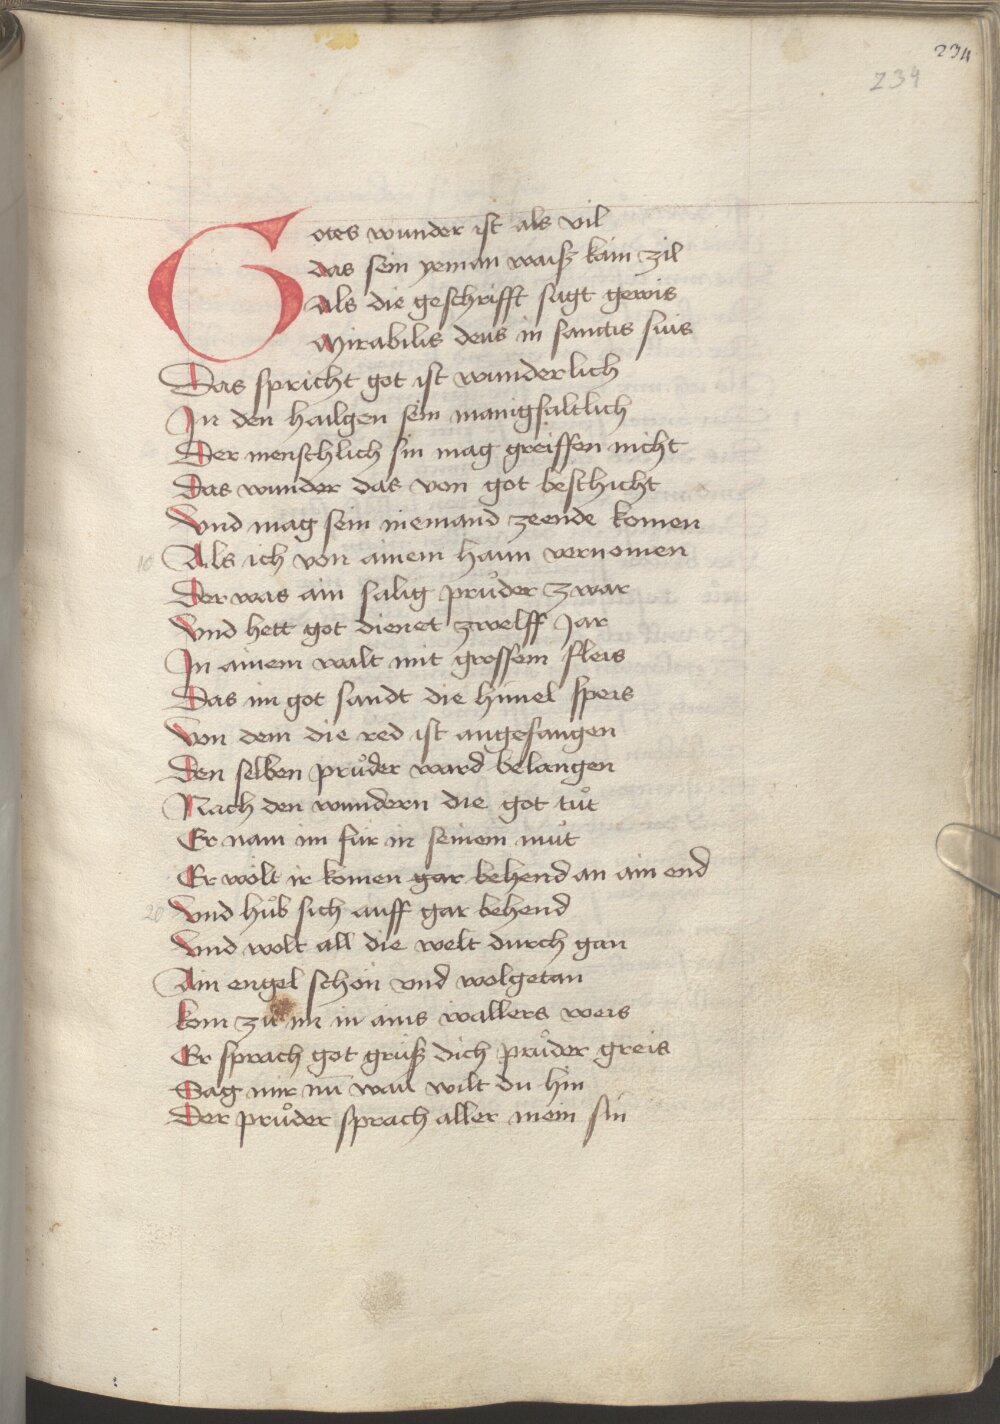 234
234
Gotes wunder ist als vil
das sein yeman waisz kain zil
Als die geschrifft sagt gewis
Mirabilis deus in sanctis suis
Das spricht got ist wunderlich
In den hailgen sein manigfaltlich
Der menschlich sin mag greiffen nicht
Das wunder das von got beschicht
Vnd mag sein niemand zeende komen
10 Als ich von ainem haim vernomen
Der was ain salig průder zwar
Vnd hett got dienet zwelff Jar
In ainem walt mit grossem fleis
Das im got sandt die himel speis
Von dem die red ist angefangen
Den selben průder ward belangen
Nach den wundern die got tůt
Er nam im für in seinem můt
Er wölt ir komen gar behend an ain end
20 Vnd hůb sich auff gar behend
Vnd wolt all die welt durch gan
Ain engel schön vnd wolgetan
kom zů im in ains wallers weis
Er sprach got grüsz dich průder greis
Sag mir nū wau wilt du hin
Der průder sprach aller mein sin